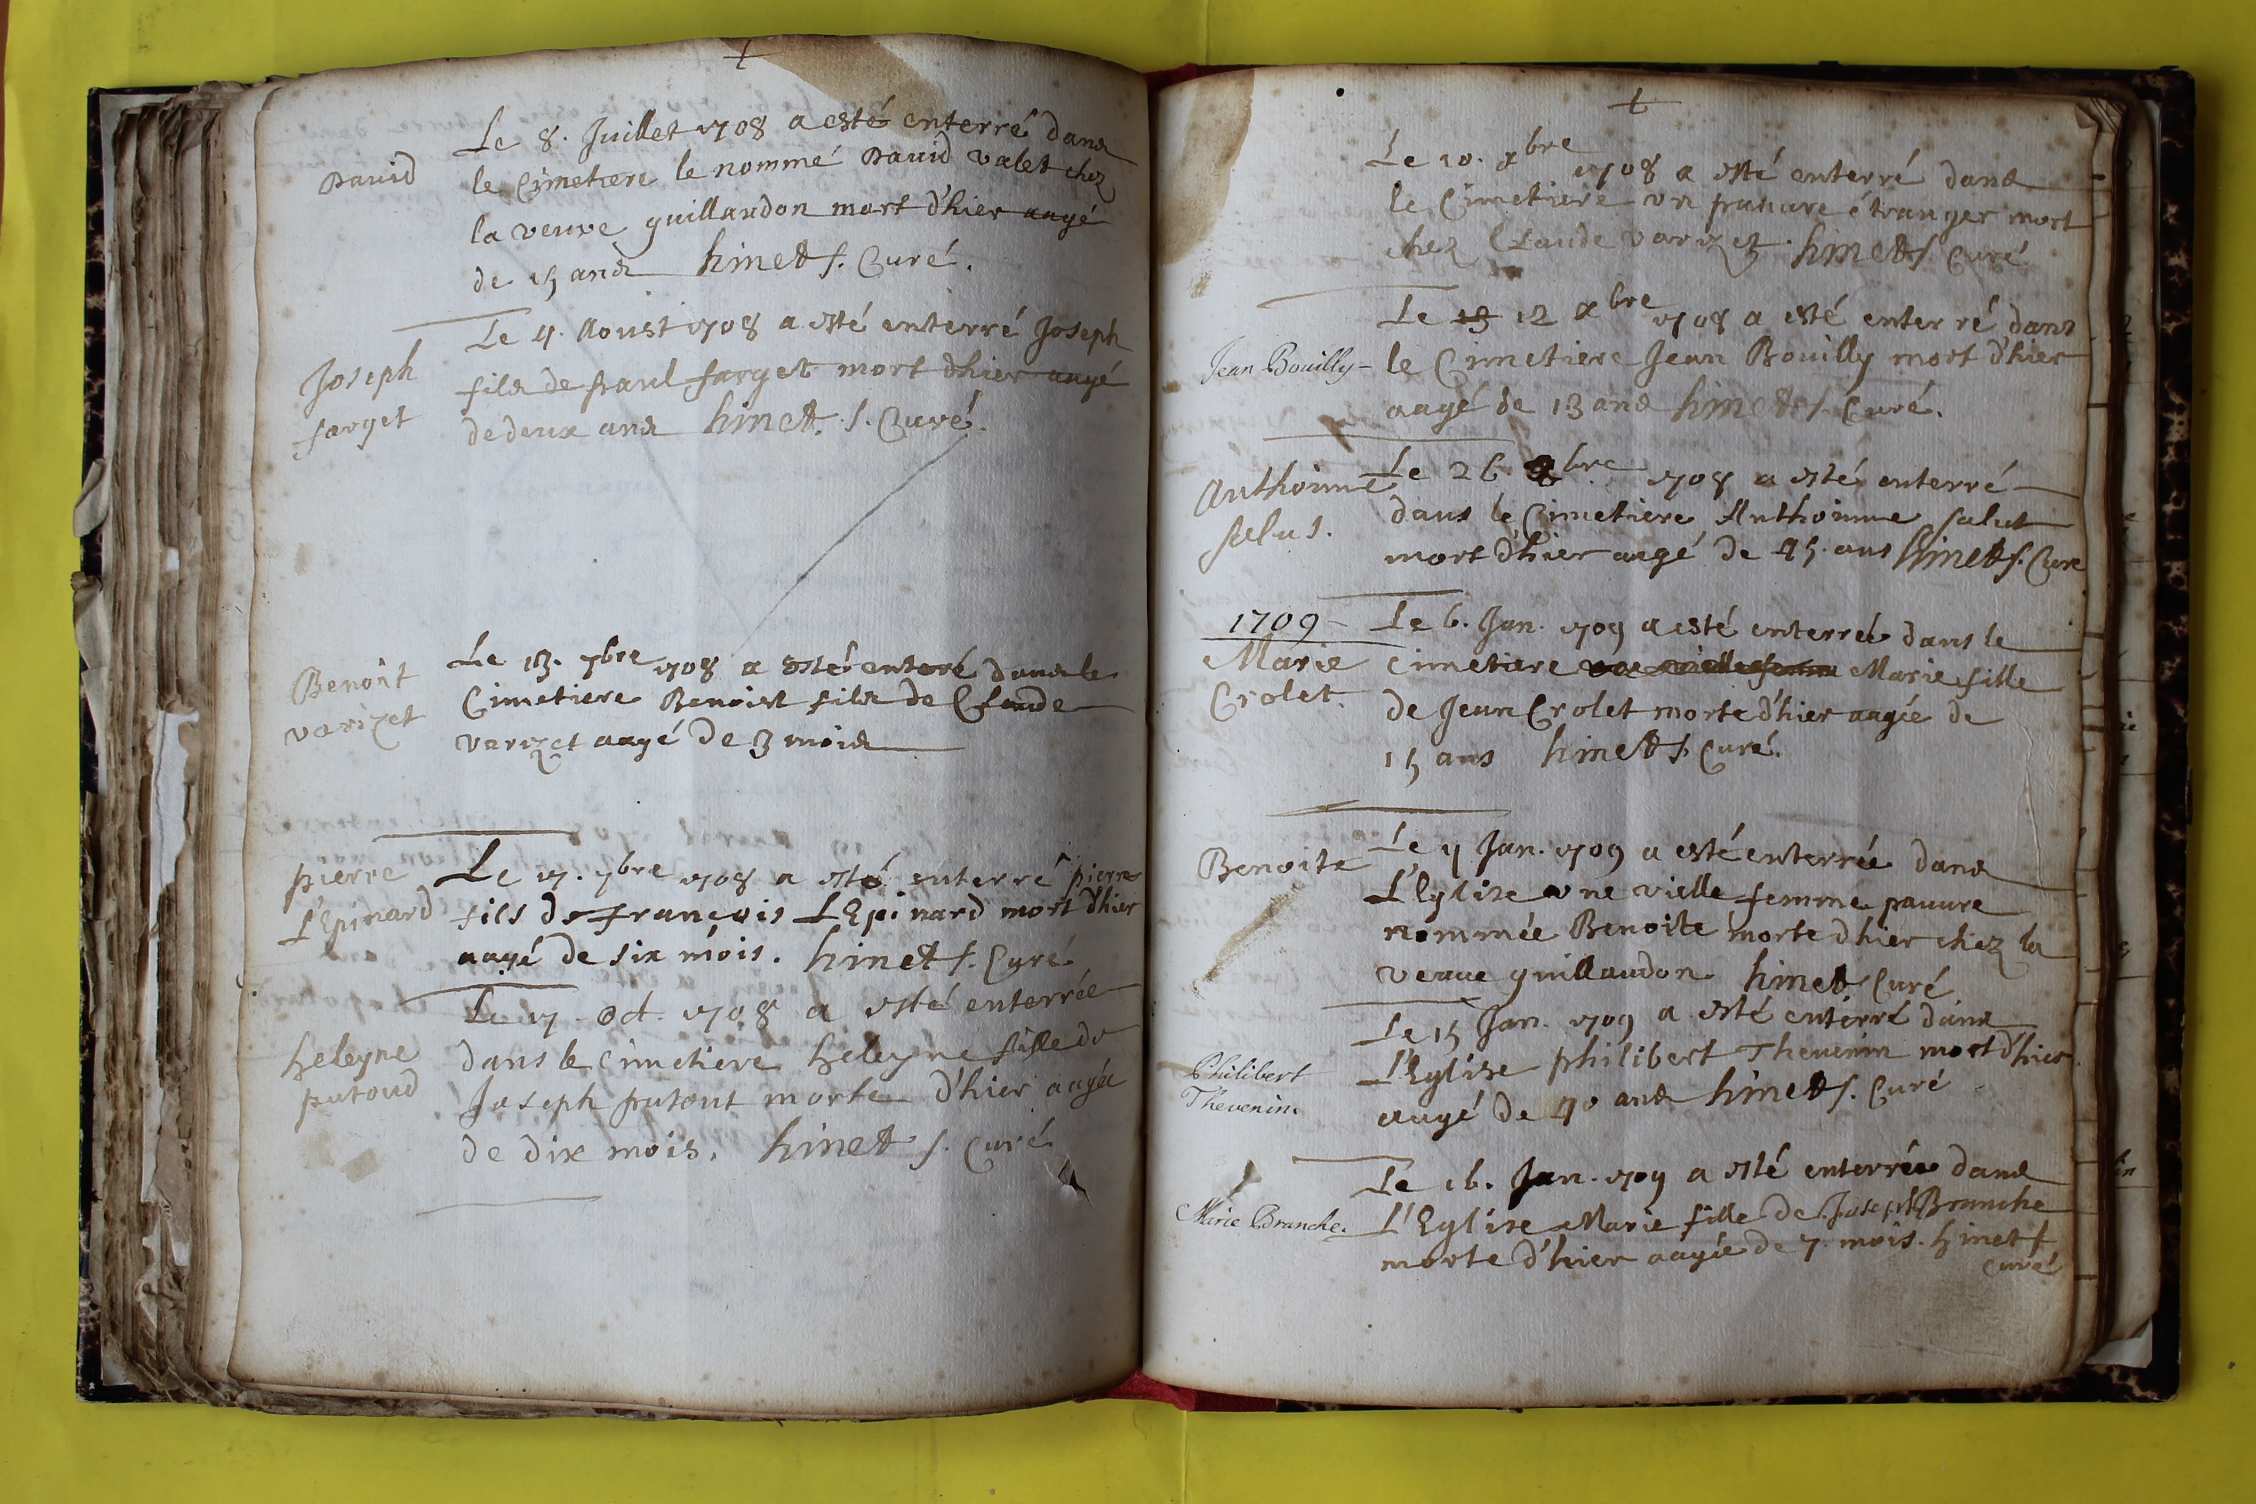 Le 8. Juillet 1708 a esté enterré dans
David
le Cimetiere le nommé David valet chez
la veuve guillaudon mort d'hier aagé
de 15 ans hinet f. Curé.
Le 4. Aoust 1708 a esté enterré Joseph
Joseph
farget
fils de paul farget mort d'hier aagé
de deux ans hinet. f. Curé.
Le 13. 7bre 1708 a esté enteré dans le
Benoit
varizet
Cimetiere Benoist fils de Claude
varizet aagé de 3 mois
pierre
L'Epinard
Le 17. 7bre 1708 a esté enterré pierre
fils de françois LEpinard mort d'hier
aagé de six mois. hinet f. Curé
Le 17. Oct. 1708 a esté enterrée
heleyne
putoud
dans le cimetiere heleyne fille de
Joseph putout morte d'hier aagée
de dix mois. hinet f. curé
Le 10. xbre 1708 a esté enterré dans
le Cimetiere un pauure étranger mort
chez Claude varizet. hinet f. Curé
Le 13 12 xbre 1708 a esté enterré dans
Jean Bouilly
le Cimetiere Jean Bouilly mort d'hier
aagé de 13 ans hinet f. Curé.
Anthoinne
salus.
Le 26 bre 1708 a esté enterré
dans le Cimetiere Anthoinne salut
mort d'hier aagé de 45. ans hinet f. Cure
1709
Marie
Crolet.
Le 6. Jan. 1709 a esté enterrée dans le
cimetiere une vielle femme Marie fille
de Jean Crolet morte d'hier aagée de
15 ans hinet f. Curé.
Benoite
Le 11 Jan. 1709 a esté enterrée dans
L'Eglise une vielle femme pauure
nommée Benoite morte d'hier chez la
veuue guillaudon hinet Curé
Le 15 Jan. 1709 a esté enterré dans
Philibert
Thevenin.
L'Eglise philibert Thevenin mort d'hier
aagé de 40 ans hinet f. Curé
Le 16. Jan. 1709 a esté enterrée dans
Marie Branche.
L'Eglise Marie fille de Joseph Branche
morte d'hier aagée de 7. mois. hinet f
curé